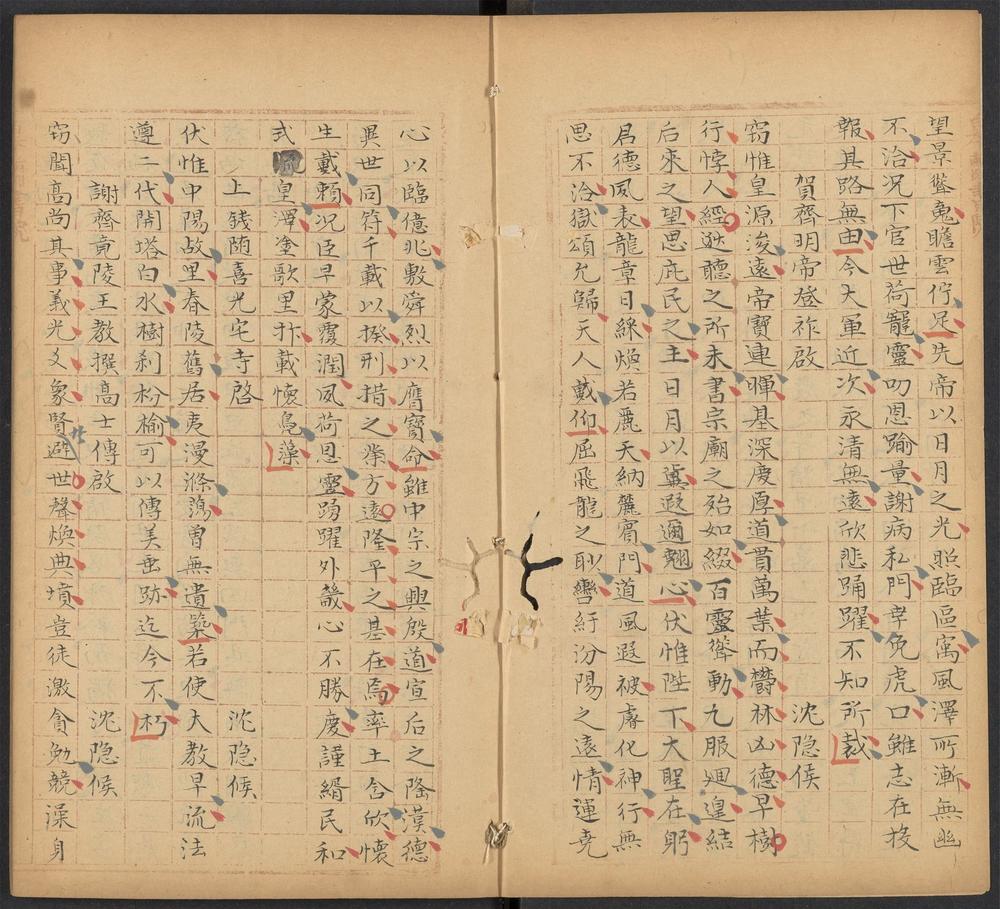 望景聳魂瞻雲佇足先帝以日月之光照臨區寓風澤所漸無幽
不洽況下官世荷寵靈叨恩踰量謝病私門幸免虎口雖志在投
報其路無由今大軍近次永清無遠欣悲踊躍不知所裁
賀齊明帝登祚啟　沈隐候
竊惟皇源浚遠帝寶連暉基深慶厚道貫萬葉而欝林凶德早樹
行悖人經逖聽之所未書宗廟之殆如綴百靈聳動九服廻遑結
后來之望思庇民之主日月以冀遐邇翹心伏惟陛下大聖在躬
君德夙表龍章日綵煥若麗天納麓賓門道風遐被膚化神行無
思不洽獄頌允歸天人戴仰屈飛龍之眇轡紆汾陽之遠情運堯
心以臨億兆敷舜烈以膺寶命雖中宗之興殷道宣后之隆漢德
異世同符千載以揆刑措之業方遠隆平之基在焉率土含欣懷
生戴賴况臣早蒙覆潤夙荷恩靈踊躍外畿心不勝慶謹緝民和
式皇澤塗歌里抃載懷鳧藻
上錢随喜光宅寺啓　沈隐候
伏惟中陽故里舂陵舊居夷漫滌蕩曽無遺築若使大教早流法
遵二代開塔白水樹刹枌榆可以傳美垂跡迄今不朽
謝齊竟陵王教撰髙士傳啟　沈隐候
竊聞髙尚其事義光爻象賢避世聲煥典墳豈徒激貪勉競澡身